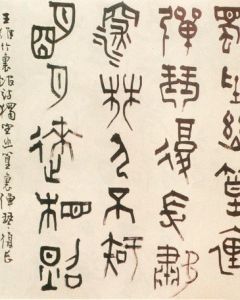 獨坐幽篁裏
彈琴復長嘯
深林人不知
明月來相照
王維竹裏館詩獨坐幽篁裏彈琴復長